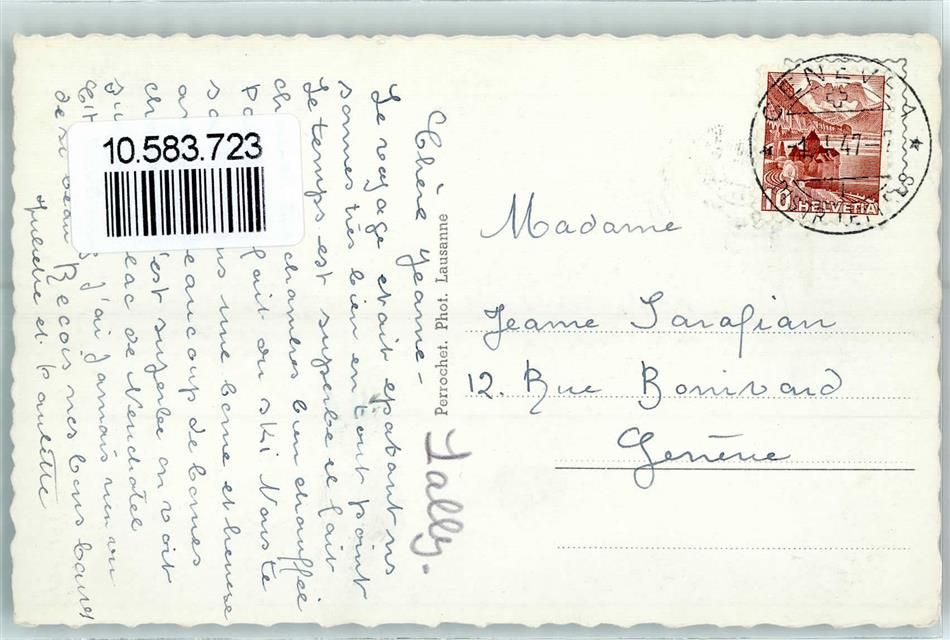 10.583.723
Chère Jeanne -
Le voyage était épatant ns
sommes très bien en tout point
Le temps est superbe il fait
chambres bien chauffée
fait du ski Nous te
une bonne et heureuse
beaucoup de bonnes
c'est superbe on voit
lac de Neuchâtel
j'ai jamais rien vu
de si beau Reçois nes bons baisers
tendre et
Sally.
Perrochet. Phot. Lausanne
GENÈVE 1
-1.I.47-7
10
HELVETIA
Madame
Jeanne Sarafian
12. Rue Bonivard
Genève